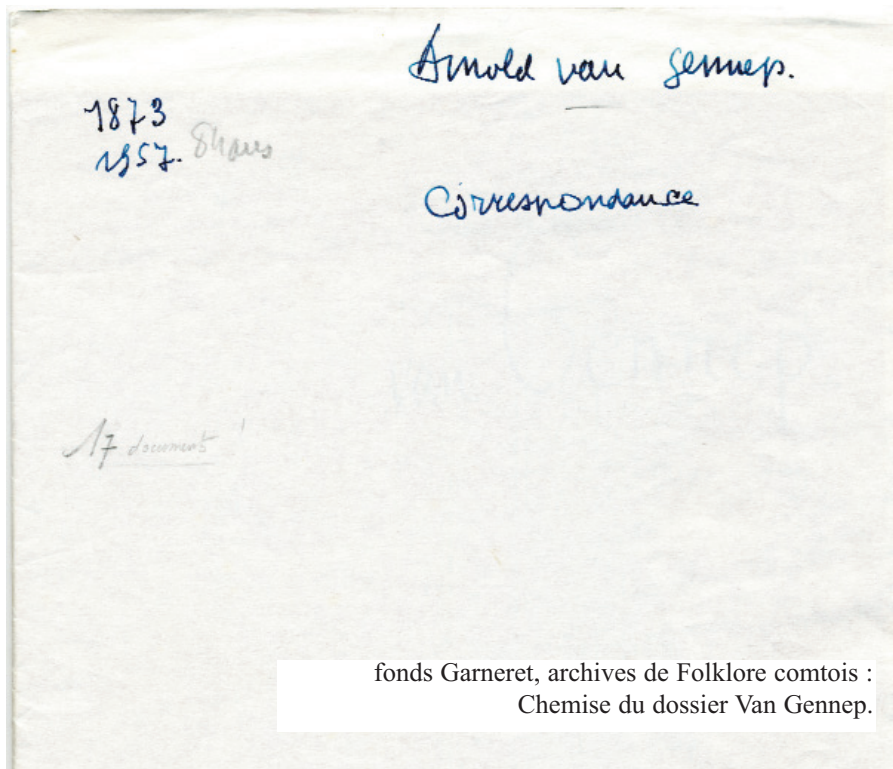 Arnold van Gennep.
1873
1957. 84 ans
Correspondance
17 documents
fonds Garneret, archives de Folklore comtois :
Chemise du dossier Van Gennep.